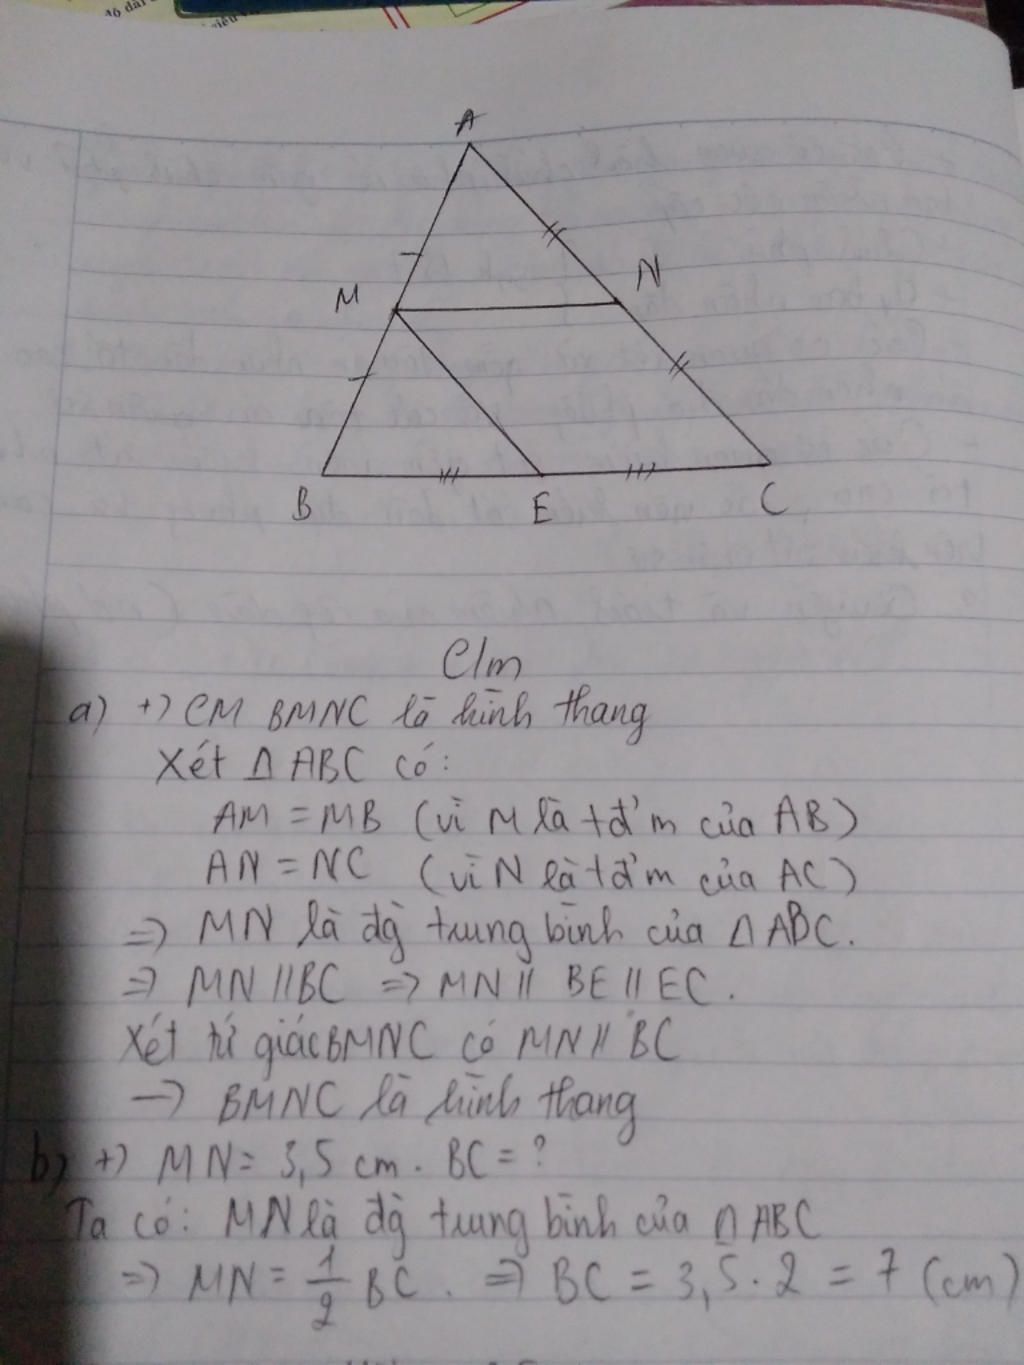 A
M
N
B
E
C
C/m
a) +) CM BMNC là hình thang
Xét Δ ABC có:
AM = MB (vì M là tđ'm của AB)
AN = NC (vì N là tđ'm của AC)
=> MN là đg̀ trung bình của Δ ABC.
=> MN // BC => MN // BE // EC.
Xét tứ giác BMNC có MN // BC
-> BMNC là hình thang
b) +) MN = 3,5 cm. BC = ?
Ta có: MN là đg̀ trung bình của Δ ABC
=> MN = 1/2 BC. => BC = 3,5 . 2 = 7 (cm)